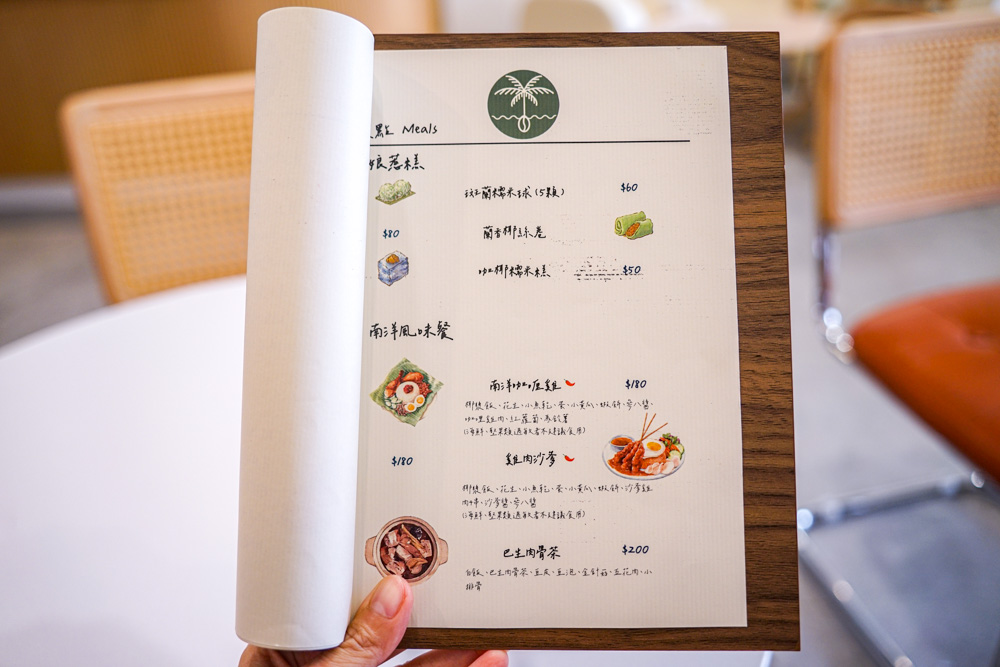 點 Meals
娘惹糕
斑蘭糯米球(5顆) $60
$80 蘭香椰絲卷
咖椰糯米糕 $50
南洋風味餐
南洋咖喱雞 $180
椰漿飯、花生、小魚乾、蛋、小黃瓜、蝦餅、參八醬、
咖哩雞肉、紅蘿蔔、馬鈴薯
(海鮮、堅果類過敏者不建議食用)
$180 雞肉沙爹
椰漿飯、花生、小魚乾、蛋、小黃瓜、蝦餅、沙爹雞
肉串、沙爹醬、參八醬
(海鮮、堅果類過敏者不建議食用)
巴生肉骨茶 $200
白飯、巴生肉骨茶、豆皮、豆泡、金針菇、五花肉、小
排骨